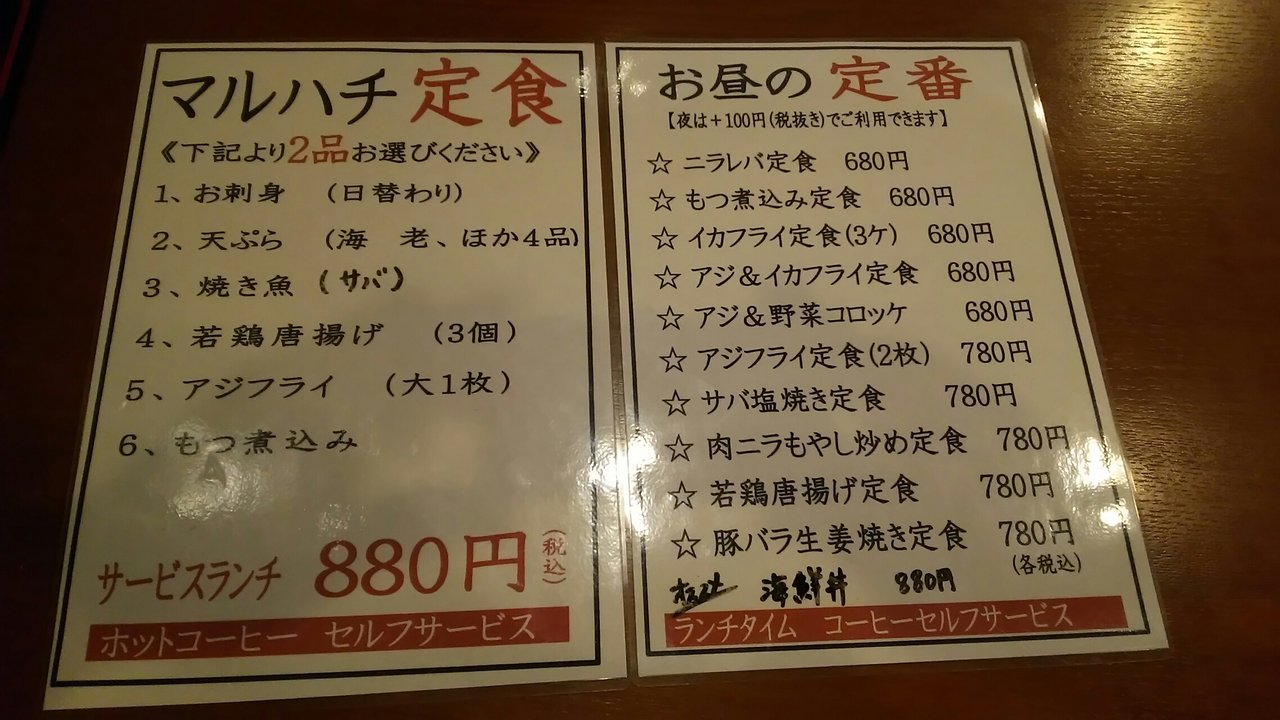 マルハチ定食
《下記より2品お選びください》
1、お刺身 (日替わり)
2、天ぷら (海 老、ほか4品)
3、焼き魚 (サバ)
4、若鶏唐揚げ (3個)
5、アジフライ (大1枚)
6、もつ煮込み
サービスランチ 880円(税込)
ホットコーヒー セルフサービス
お昼の定番
【夜は+100円(税抜き)でご利用できます】
☆ ニラレバ定食 680円
☆ もつ煮込み定食 680円
☆ イカフライ定食(3ケ) 680円
☆ アジ&イカフライ定食 680円
☆ アジ&野菜コロッケ 680円
☆ アジフライ定食(2枚) 780円
☆ サバ塩焼き定食 780円
☆ 肉ニラもやし炒め定食 780円
☆ 若鶏唐揚げ定食 780円
☆ 豚バラ生姜焼き定食 780円
(各税込)
海鮮丼 880円
ランチタイム コーヒーセルフサービス